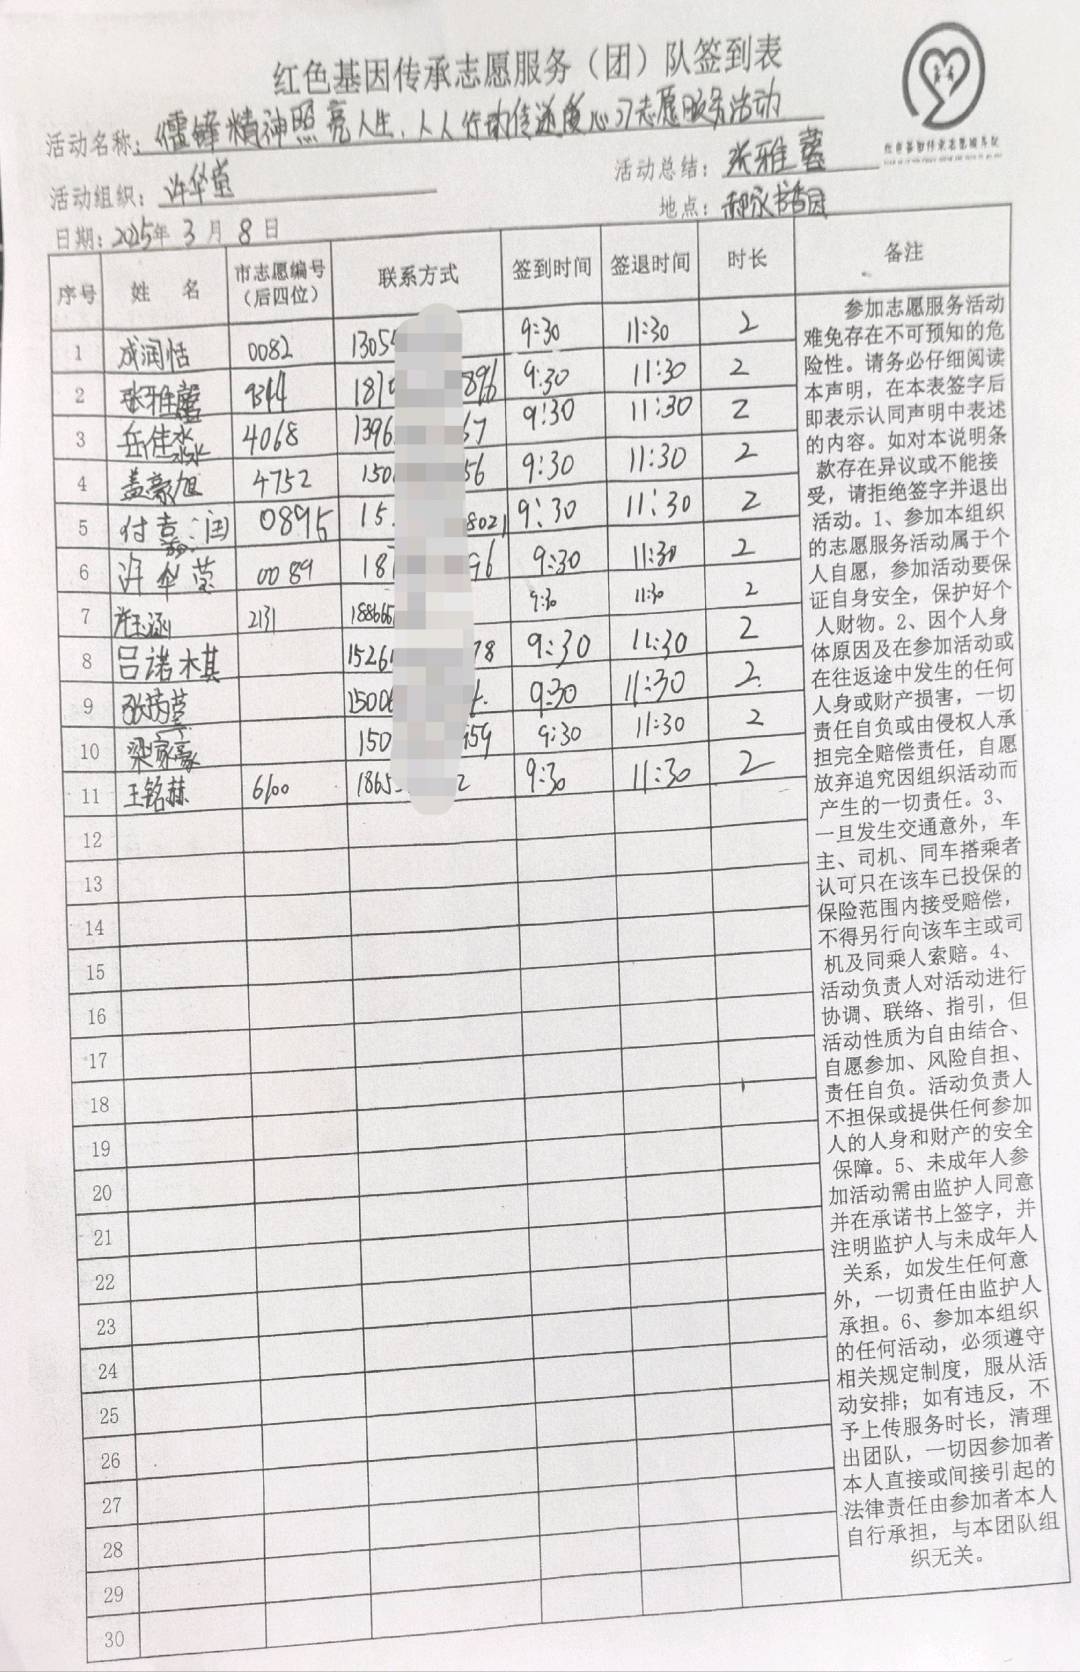 红色基因传承志愿服务（团）队签到表
活动名称：儒锋精神照亮人生、人人行动传递爱心 志愿服务活动
活动组织：许华莹 活动总结：张雅馨
日期：2025年3月8日 地点：书香园
序号 姓 名 市志愿编号（后四位） 联系方式 签到时间 签退时间 时长 备注
1 成润恬 0082 1305 9:30 11:30 2
2 张雅馨 9344 187 896 9:30 11:30 2
3 岳佳淼 4068 1396 67 9:30 11:30 2
4 盖豪旭 4752 150 56 9:30 11:30 2
5 付嘉润 0895 15 8021 9:30 11:30 2
6 许华莹 0089 187 96 9:30 11:30 2
7 许玉涵 2131 18866 9:30 11:30 2
8 吕诺木其 1526 78 9:30 11:30 2
9 张芮莹 1500 9:30 11:30 2
10 梁家豪 150 959 9:30 11:30 2
11 王铭赫 6100 1865 2 9:30 11:30 2
12
13
14
15
16
17
18
19
20
21
22
23
24
25
26
27
28
29
30
参加志愿服务活动
难免存在不可预知的危
险性。请务必仔细阅读
本声明，在本表签字后
即表示认同声明中表述
的内容。如对本说明条
款存在异议或不能接
受，请拒绝签字并退出
活动。1、参加本组织
的志愿服务活动属于个
人自愿，参加活动要保
证自身安全，保护好个
人财物。2、因个人身
体原因及在参加活动或
在往返途中发生的任何
人身或财产损害，一切
责任自负或由侵权人承
担完全赔偿责任，自愿
放弃追究因组织活动而
产生的一切责任。3、
一旦发生交通意外，车
主、司机、同车搭乘者
认可只在该车已投保的
保险范围内接受赔偿，
不得另行向该车主或司
机及同乘人索赔。4、
活动负责人对活动进行
协调、联络、指引，但
活动性质为自由结合、
自愿参加、风险自担、
责任自负。活动负责人
不担保或提供任何参加
人的人身和财产的安全
保障。5、未成年人参
加活动需由监护人同意
并在承诺书上签字，并
注明监护人与未成年人
关系，如发生任何意
外，一切责任由监护人
承担。6、参加本组织
的任何活动，必须遵守
相关规定制度，服从活
动安排；如有违反，不
予上传服务时长，清理
出团队，一切因参加者
本人直接或间接引起的
法律责任由参加者本人
自行承担，与本团队组
织无关。